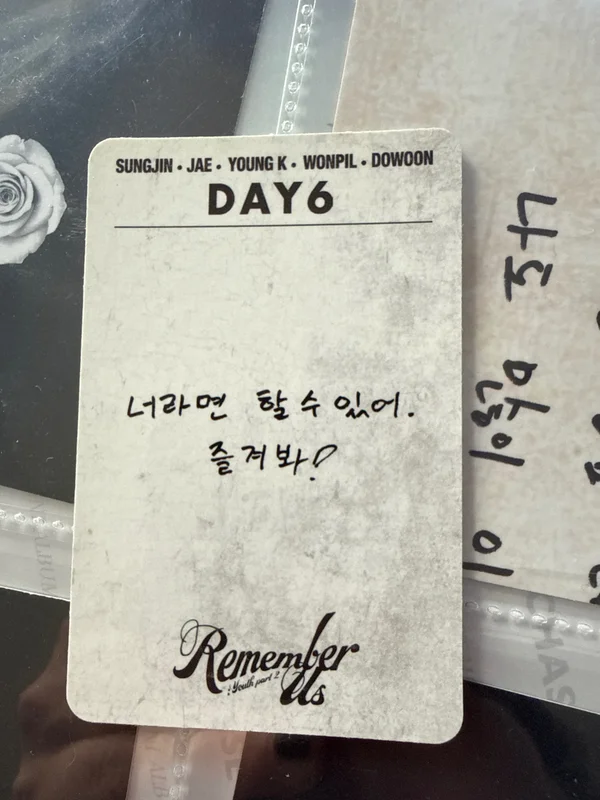 SUNGJIN • JAE • YOUNG K • WONPIL • DOWOON
DAY6
너라면 할 수 있어.
즐겨봐!
Remember Us
: Youth part 2